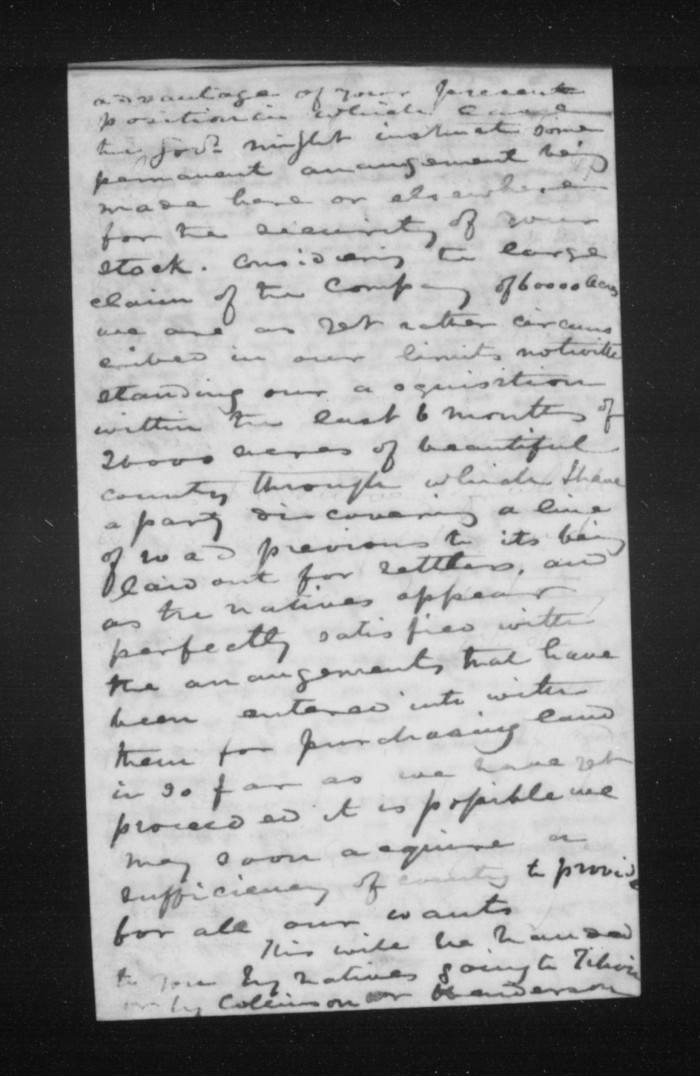 advantage of your present
position in which case
the Govr. might instruct some
permanent arrangement being
made here or elsewhere
for the security of your
stock. Considering the large
claim of the Company of 60000 acres
we are as yet rather circums
cribed in our limits notwith
standing our acquisition
within the last 6 months of
26000 acres of beautiful
country through which I have
a party discovering a line
of road previous to its being
laid out for settlers, and
as the natives appear
perfectly satisfied with
the arrangements that have
been entered into with
them for purchasing land
in so far as we have yet
proceeded it is possible we
may soon acquire a
sufficiency of country to provide
for all our wants
This will be handed
to you by natives going to
or by Collinson or Henderson